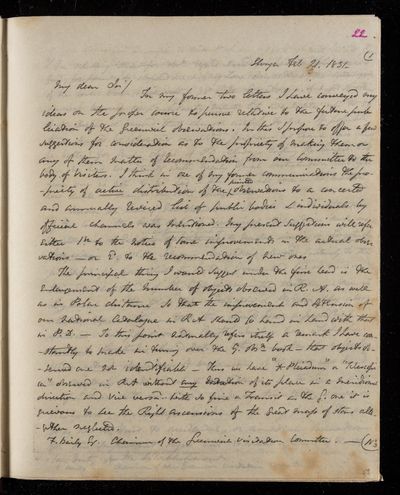 22.
(1
Slough Feb 21. 1831.
My dear Sir/
In my former two letters I have conveyed my
ideas on the proper course to pursue relative to the future pub
lication of the Greenwich Observations. In this I propose to offer a few
suggestions for consideration as to the propriety of making them or
any of them matter of recommendation from our Committee to the
body of Visitors. I think in one of my former communications the pro-
-priety of active distribution of the printed observations to a concerted
and annually revised list of public bodies & individuals by
official channels was mentioned. My present suggestions will refer
either 1st to the notice of some improvements in the actual obser
vations — or 2° to the recommendation of new ones
The principal thing I would suggest under the first head is the
enlargement of the number of objects observed in R. A. as well
as in Polar distance so that the improvement and extension of
our National Catalogue in RA should go hand in hand with that
in P.D. — To this point naturally refers itself a remark I have con
-stantly to make in turning over the G. Obns book — that objects ob-
-served are not identifiable — Thus we have "a Medium" or "
" observed in RA without any notation of its place in a meridional
direction and vice versa.
grievous to see the Right Ascensions of the great mass of stars alto
-gether neglected.
F. Baily Esq. Chairman of the Greenwich Visitation Committee. —